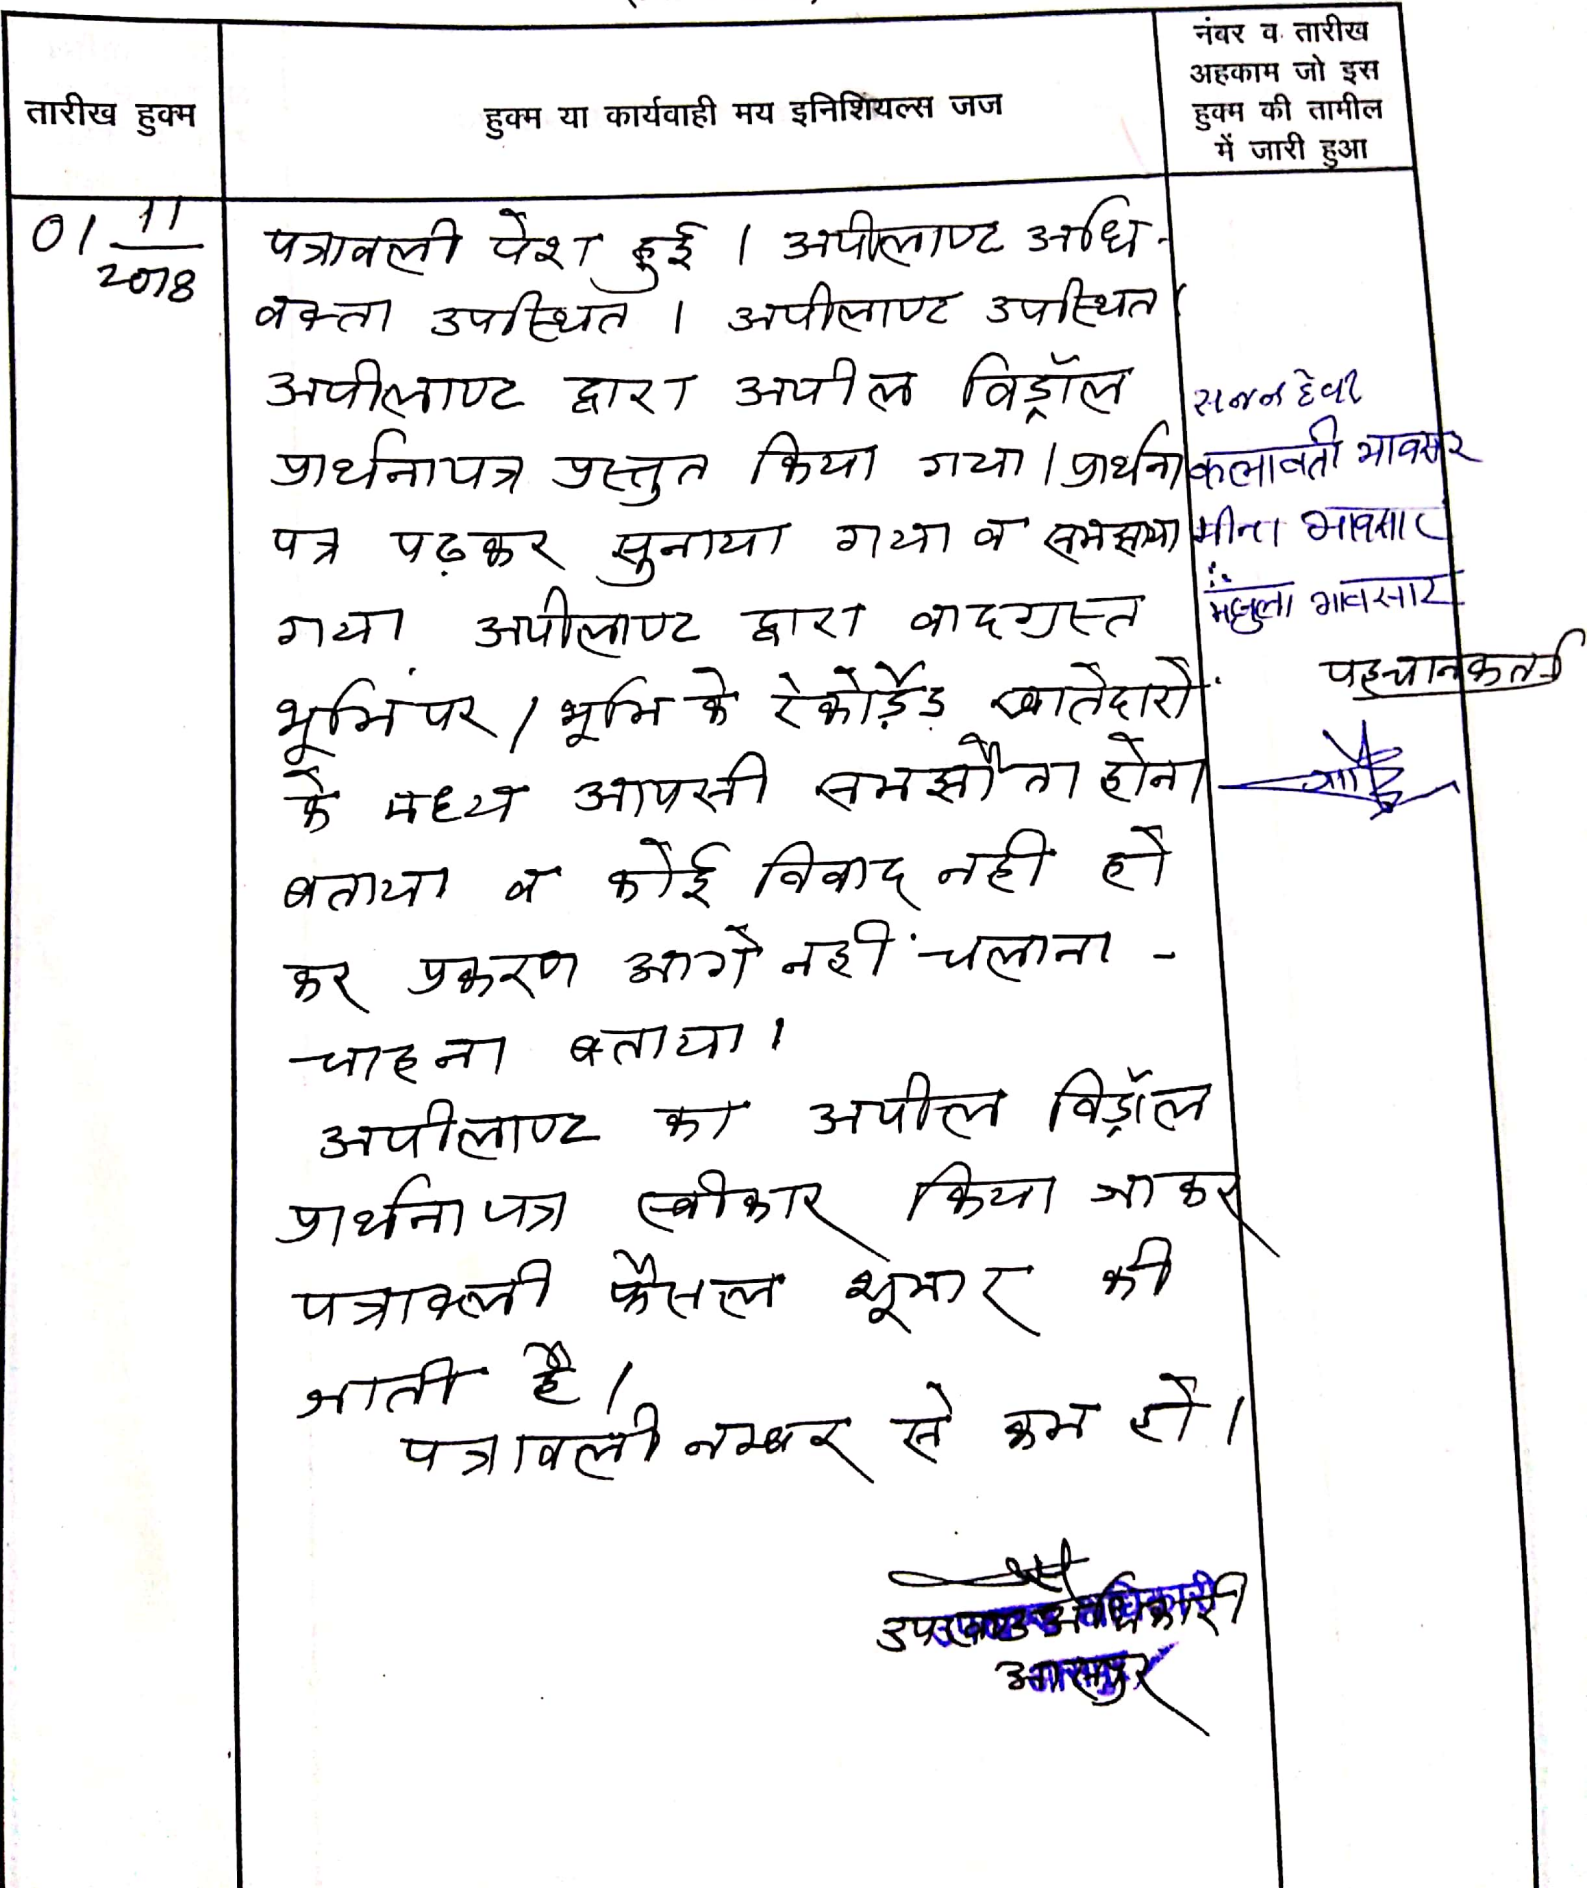 तारीख हुक्म
हुक्म या कार्यवाही मय इनिशियल्स जज
नंबर व तारीख
अहकाम जो इस
हुक्म की तामील
में जारी हुआ
01/11/2018
पत्रावली पेश हुई । अपीलाण्ट अधि-
वक्ता उपस्थित । अपीलाण्ट उपस्थित।
अपीलाण्ट द्वारा अपील विड्रॉल
प्रार्थनापत्र प्रस्तुत किया गया। प्रार्थना
पत्र पढ़कर सुनाया गया व समझाया
गया अपीलाण्ट द्वारा वादग्रस्त
भूमि पर / भूमि के रेकोर्डेड खातेदारों
के मध्य आपसी समझौता होना
बताया व कोई विवाद नही हो
कर प्रकरण आगे नहीं चलाना -
चाहना बताया।
अपीलाण्ट का अपील विड्रॉल
प्रार्थना पत्र स्वीकार किया जाकर
पत्रावली फैसल शूमार की
जाती है।
पत्रावली नम्बर से कम हो।
उपखण्ड अधिकारी
आसपुर
सजन देवी
कलावती भावसार
मीना भावसार
मंजुला भावसार
पहचानकर्ता